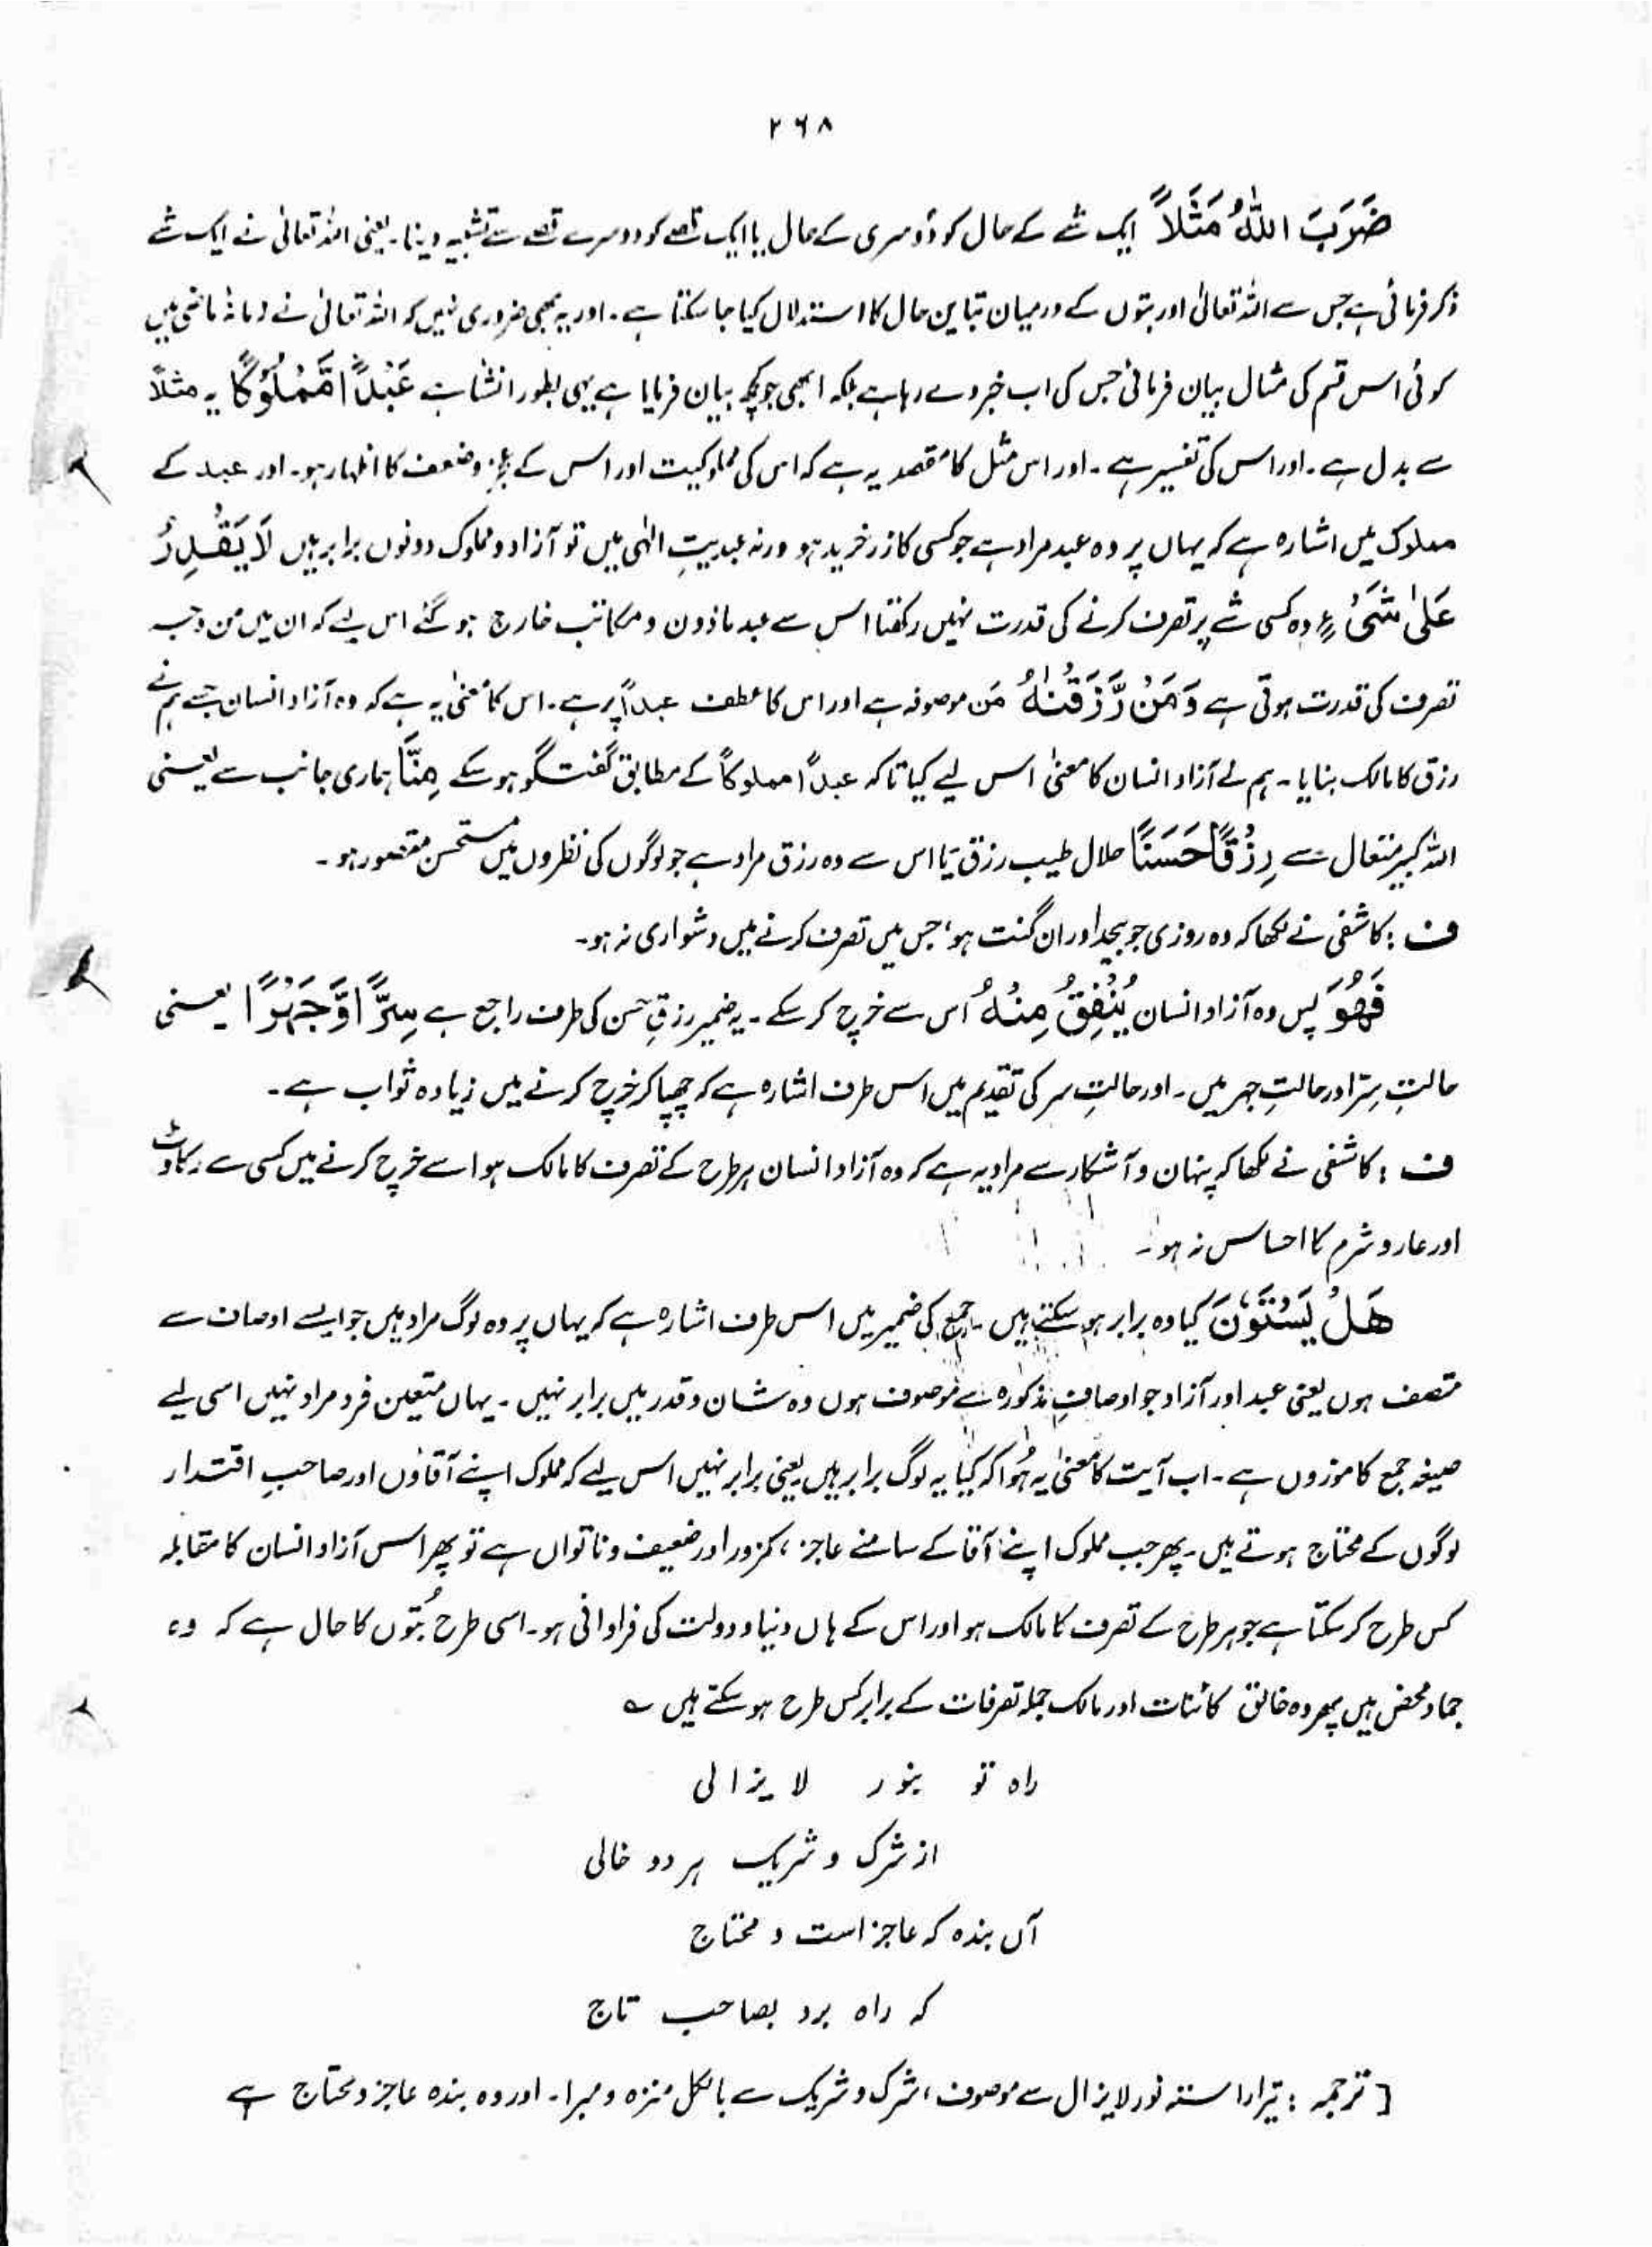 ۲۶۸
ضَرَبَ اللّٰهُ مَثَلاً ایک شے کے حال کو دُوسری کے حال یا ایک قصے کو دوسرے قصے سے تشبیہ دینا۔ یعنی اللہ تعالیٰ نے ایک شے
ذکر فرمائی ہے جس سے اللہ تعالیٰ اور بتوں کے درمیان تباین حال کا استدلال کیا جا سکتا ہے۔ اور یہ بھی ضروری نہیں کہ اللہ تعالیٰ نے زمانۂ ماضی میں
کوئی اس قسم کی مثال بیان فرمائی جس کی اب خبر دے رہا ہے بلکہ ابھی جو کچھ بیان فرمایا ہے یہی بطور انشا ہے عَبْداً مَّمْلُوْكًا یہ مثلاً
سے بدل ہے۔ اور اس کی تفسیر ہے۔ اور اس مثل کا مقصد یہ ہے کہ اس کی مملوکیت اور اس کے عجز و ضعف کا اظہار ہو۔ اور عبد کے
مملوک میں اشارہ ہے کہ یہاں پر وہ عبد مراد ہے جو کسی کا زر خرید ہو ورنہ عبدیتِ الٰہی میں تو آزاد و مملوک دونوں برابر ہیں لَا يَقْدِرُ
عَلٰى شَىْءٍ وہ کسی شے پر تصرف کرنے کی قدرت نہیں رکھتا اس سے عبد ماذون و مکاتب خارج ہو گئے اس لیے کہ ان میں من وجہ
تصرف کی قدرت ہوتی ہے وَمَنْ رَّزَقْنٰهُ مَن موصوفہ ہے اور اس کا عطف عبداً پر ہے۔ اس کا معنیٰ یہ ہے کہ وہ آزاد انسان جسے ہم نے
رزق کا مالک بنایا۔ ہم نے آزاد انسان کا معنیٰ اس لیے کیا تاکہ عبداً مملوکاً کے مطابق گفتگو ہو سکے مِنَّا ہماری جانب سے یعنی
اللہ کبیر متعال سے رِزْقًا حَسَنًا حلال طیب رزق یا اس سے وہ رزق مراد ہے جو لوگوں کی نظروں میں مستحسن متصور ہو۔
ف : کاشفی نے لکھا کہ وہ روزی جو بیحد اور ان گنت ہو، جس میں تصرف کرنے میں دشواری نہ ہو۔
فَهُوَ پس وہ آزاد انسان يُنْفِقُ مِنْهُ اُس سے خرچ کر سکے۔ یہ ضمیر رزقِ حسن کی طرف راجع ہے سِرًّا وَّجَهْرًا یعنی
حالتِ سِرّ اور حالتِ جہر میں۔ اور حالتِ سر کی تقدیم میں اس طرف اشارہ ہے کہ چھپا کر خرچ کرنے میں زیادہ ثواب ہے۔
ف : کاشفی نے لکھا کہ پنہان و آشکار سے مراد یہ ہے کہ وہ آزاد انسان ہر طرح کے تصرف کا مالک ہو اسے خرچ کرنے میں کسی سے رکاوٹ
اور عار و شرم کا احساس نہ ہو۔
هَلْ يَسْتَوٗنَ کیا وہ برابر ہو سکتے ہیں۔ جمع کی ضمیر میں اس طرف اشارہ ہے کہ یہاں پر وہ لوگ مراد ہیں جو ایسے اوصاف سے
متصف ہوں یعنی عبد اور آزاد جو اوصافِ مذکورہ سے موصوف ہوں وہ شان و قدر میں برابر نہیں۔ یہاں متعین فرد مراد نہیں اسی لیے
صیغہ جمع کا موزوں ہے۔ اب آیت کا معنیٰ یہ ہُوا کہ کیا یہ لوگ برابر ہیں یعنی برابر نہیں اس لیے کہ مملوک اپنے آقاؤں اور صاحبِ اقتدار
لوگوں کے محتاج ہوتے ہیں۔ پھر جب مملوک اپنے آقا کے سامنے عاجز، کمزور اور ضعیف و ناتواں ہے تو پھر اس آزاد انسان کا مقابلہ
کس طرح کر سکتا ہے جو ہر طرح کے تصرف کا مالک ہو اور اس کے ہاں دنیا و دولت کی فراوانی ہو۔ اسی طرح بُتوں کا حال ہے کہ وہ
جماد محض ہیں پھر وہ خالق کائنات اور مالک جملہ تصرفات کے برابر کس طرح ہو سکتے ہیں ؎
راہ تو بنور لا یزالی
از شرک و شریک ہر دو خالی
آں بندہ کہ عاجز است و محتاج
کہ راہ برد بصاحب تاج
[ ترجمہ : تیرا راستہ نور لایزال سے موصوف، شرک و شریک سے بالکل منزہ و مبرا۔ اور وہ بندہ عاجز و محتاج ہے